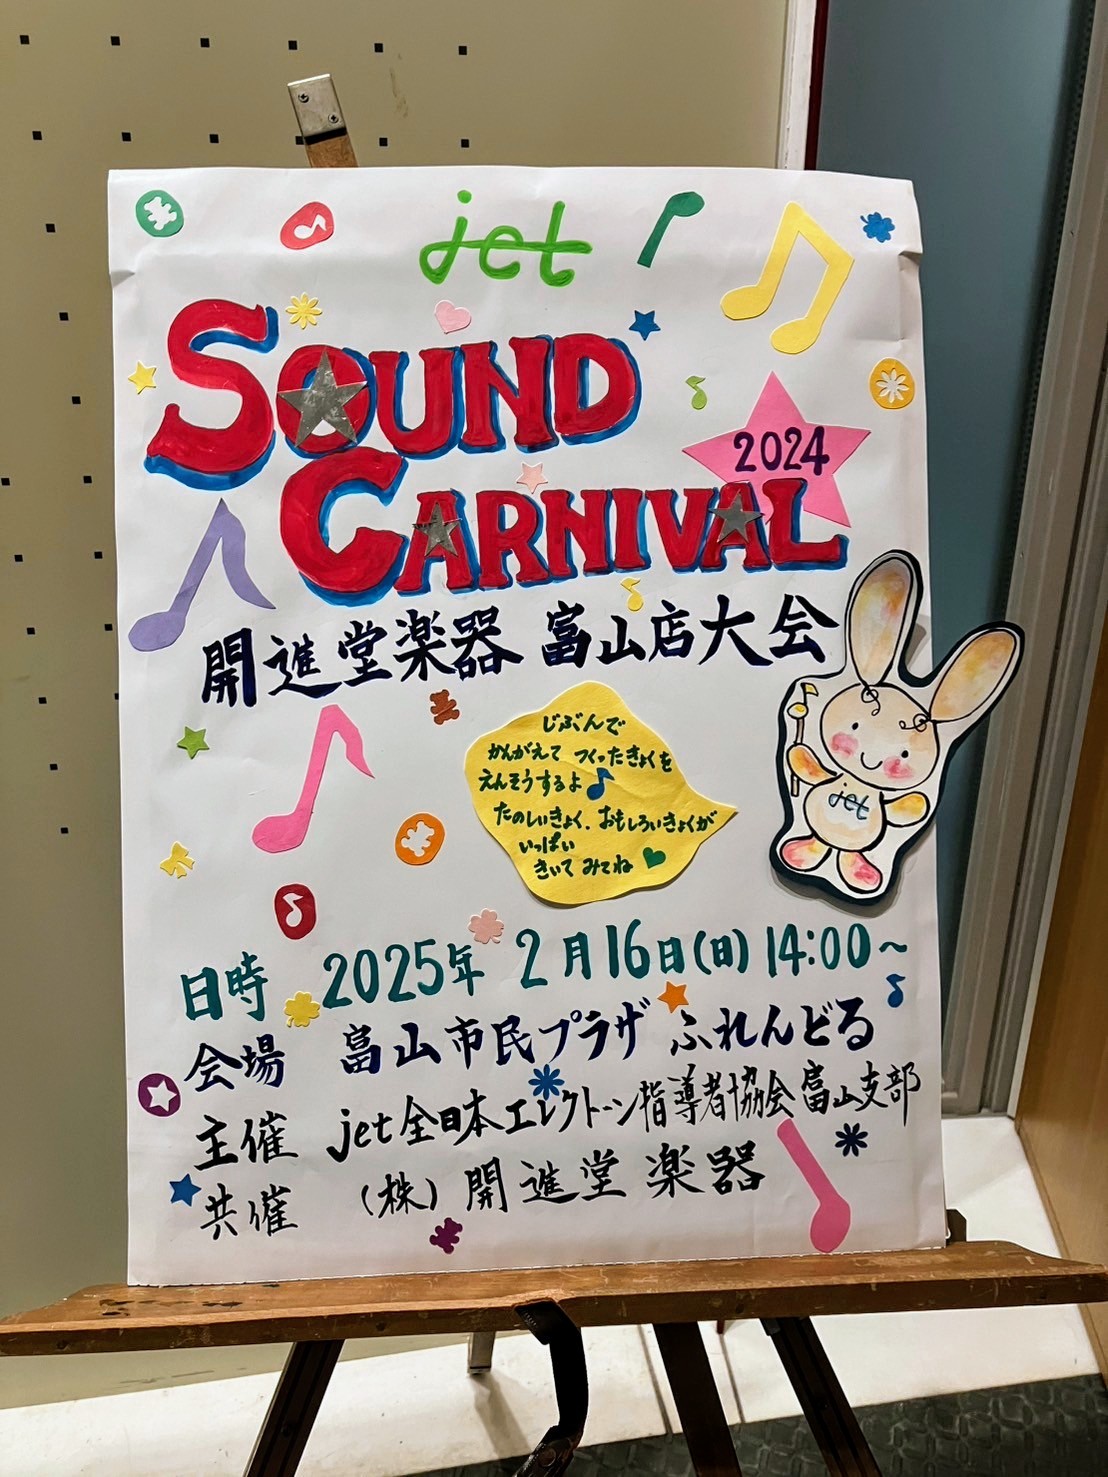 jet
SOUND
2024
CARNIVAL
開進堂楽器 富山店大会
じぶんで
かんがえて つくったきょくを
えんそうするよ♪
たのしいきょく、おもしろいきょくが
いっぱい
きいて みてね
jet
日時 2025年 2月16日(日) 14:00~
会場 富山市民プラザ ふれんどる
主催 jet全日本エレクトーン指導者協会富山支部
共催 (株)開進堂楽器